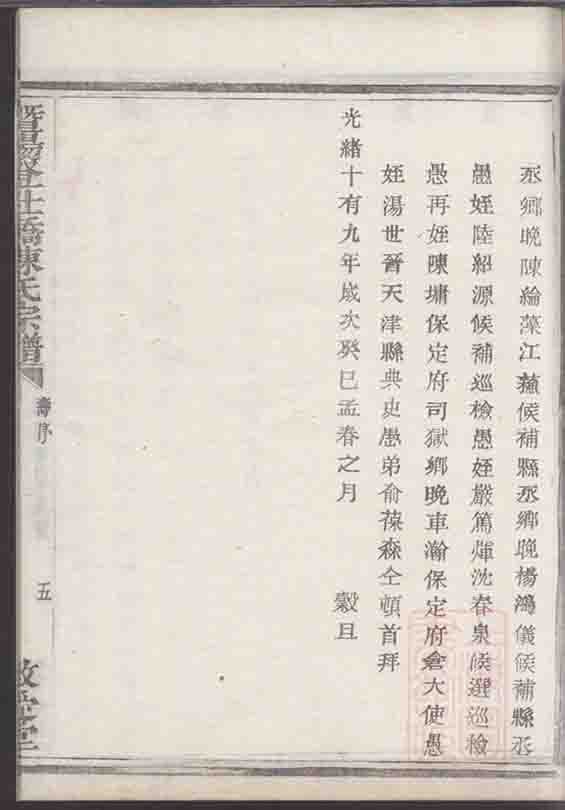 丞鄉晚陳綸藻江蘓候補縣丞鄉晚楊鴻儀候補縣丞
愚姪陸紹源候補巡檢愚姪嚴篤煇沈春泉候選巡檢
愚再姪陳墉保定府司獄鄉晚車瀚保定府倉大使愚
姪湯世晉天津縣典史愚弟俞葆森仝頓首拜
光緒十有九年歲次癸巳孟春之月 穀旦
暨陽 仕橋陳氏宗譜
壽序
五